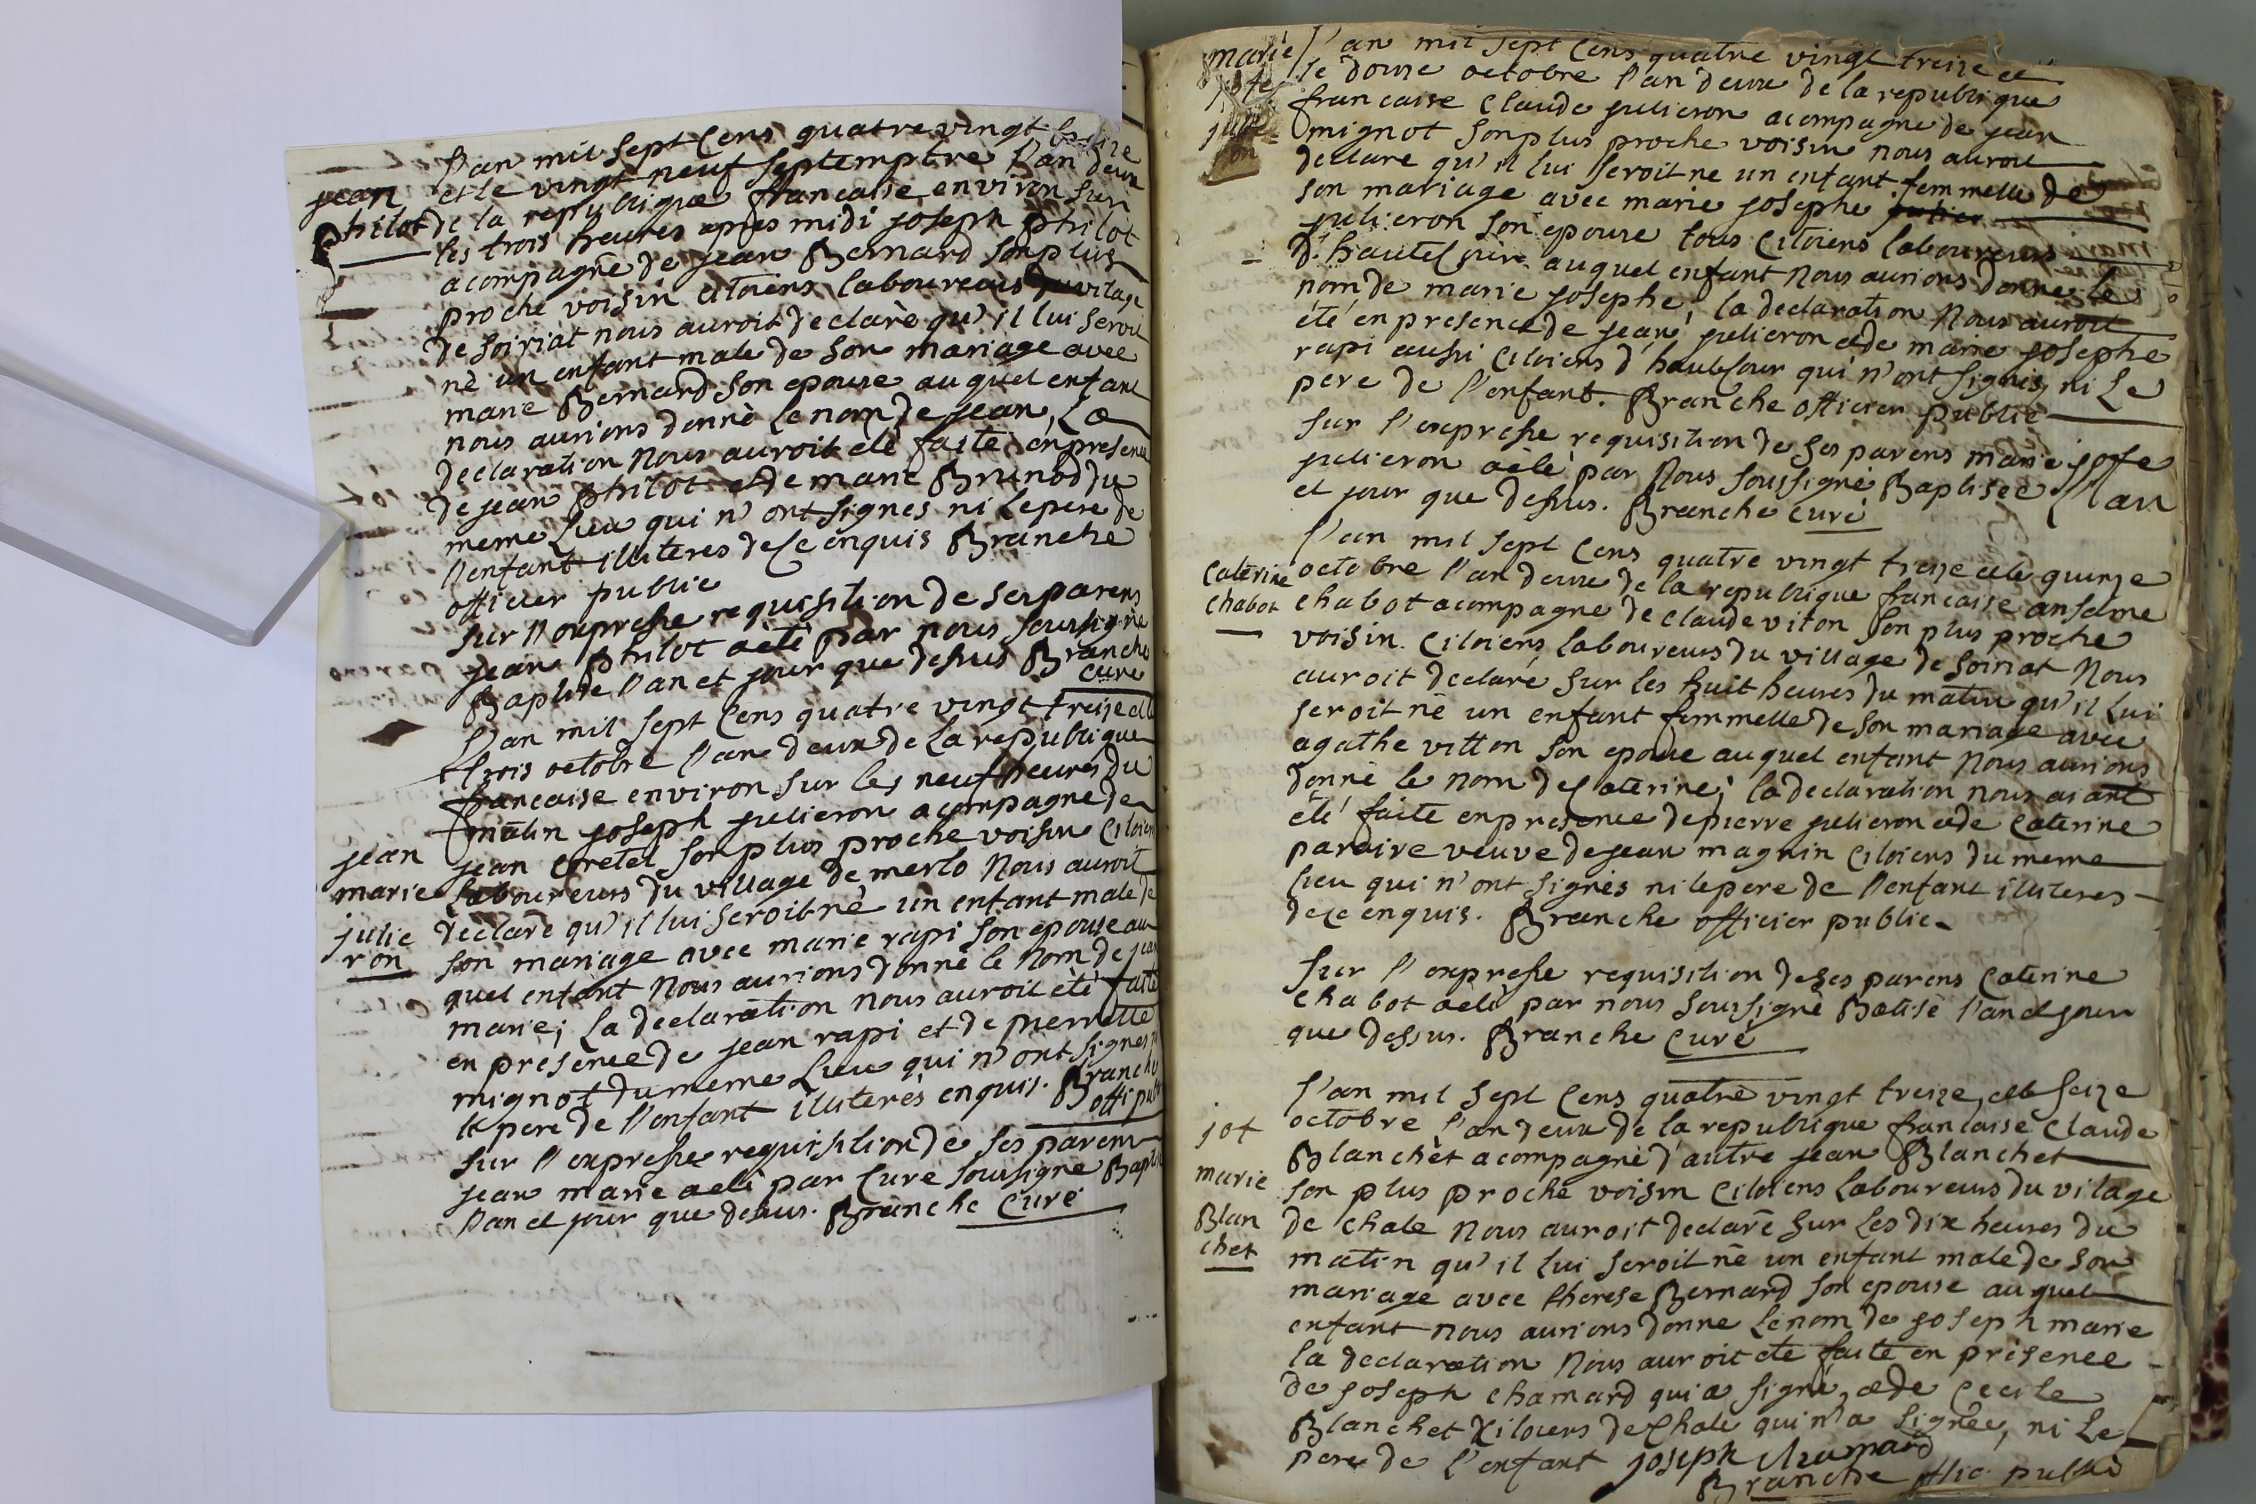 l'an mil sept cens quatre vingt treize
et le vingt neuf septemptre l'an deux
jean
philot
de la republique francaise environ sur
les trois heures apres midi joseph philot
acompagne de jean Bernard son plus
proche voisin citoiens laboureurs du vilage
de soiriat nous auroit declarè qu'il lui seroit
nè un enfant male de son mariage avec
marie Bernard son epouse au quel enfant
nous aurions donnè le nom de jean, La
declaration nous auroit etè faite en presence
de jean philot et de marie Brunod du
meme Lieu qui n'ont signes ni le pere de
l'enfant illiteres de ce enquis Branche
officier public
sur l'expresse requisition de ses parens
jean philot aètè par nous soussignè
Baptise l'an et jour que dessus Branche
curè
l'an mil sept cens quatre vingt treize et le
trois octobre l'an deux de la republique
francaise environ sur les neuf heures du
matin joseph julieron acompagne de
jean
marie
julie
ron
jean cretet son plus proche voisin citoiens
Laboureurs du village de merlo nous auroit
declare qu'il lui seroit nè un enfant male de
son mariage avec marie rapi son epouse au
quel enfant nous aurions donnè le nom de jean
marie; la declaration nous auroit ètè faite
en presence de jean rapi et de pierrette
mignot du meme Lieu qui n'ont signes ni
le pere de l'enfant illiterès enquis. Branche
offi publi
sur l'expresse requisition de ses parens
jean marie aetè par curè soussigne Bapti
l'an et jour que dessus. Branche curè
marie
jofe
julie
ron
l'an mil sept cens quatre vingt treize et
le douze octobre l'an deux de la republique
francaise claude julieron acompagne de jean
mignot son plus proche voisin nous auroit
declare qu'il lui seroit ne un enfant femmelle de
son mariage avec marie josephe julier
julieron son epouse tous citoiens laboureurs
d'hautecour auquel enfant nous aurions donne le
nom de marie josephe; la declaration nous auroit
ètè en presence de jean julieron et de marie josephe
rapi aussi citoiens d'hautecour qui n'ont signès, ni le
pere de l'enfant. Branche officier public
sur l'expresse requisition de ses parens marie jofe
julieron aètè par nous soussignè Baptisee l'an
et jour que dessus. Branche curè
caterine
chabot
l'an mil sept cens quatre vingt treize et le quinze
octobre l'an deux de la republique francaise anselme
chabot acompagne de claude viton son plus proche
voisin. citoiens laboureurs du village de soiriat nous
auroit declarè sur les huit heures du matin qu'il lui
seroit nè un enfant femmelle de son mariage avec
agathe vitton son epouse auquel enfant nous aurions
donnè le nom de caterine; la declaration nous aiant
étè faite en presence de pierre julieron et de caterine
paroire veuve de jean magnin citoiens du meme
lieu qui n'ont signès ni le pere de l'enfant illiteres
de ce enquis. Branche officier public
sur l'expresse requisition de ses parens caterine
chabot aetè par nous soussignè Batisè l'an et jour
que dessus. Branche curè
jof
marie
Blan
chet
l'an mil sept cens quatre vingt treize, et le seize
octobre l'an deux de la republique francaise claude
Blanchet acompagnè d'autre jean Blanchet
son plus proche voisin citoiens laboureurs du vilage
de chale nous auroit declarè sur les dix heures du
matin qu'il lui seroit nè un enfant male de son
mariage avec therese Bernard son epouse auquel
enfant nous aurions donne le nom de joseph marie
la declaration nous auroit ete faite en presence
de joseph chamard qui a signè, et de cecile
Blanchet citoiens de chale qui n'a signèe, ni le
pere de l'enfant joseph chamard
Branche offic. public